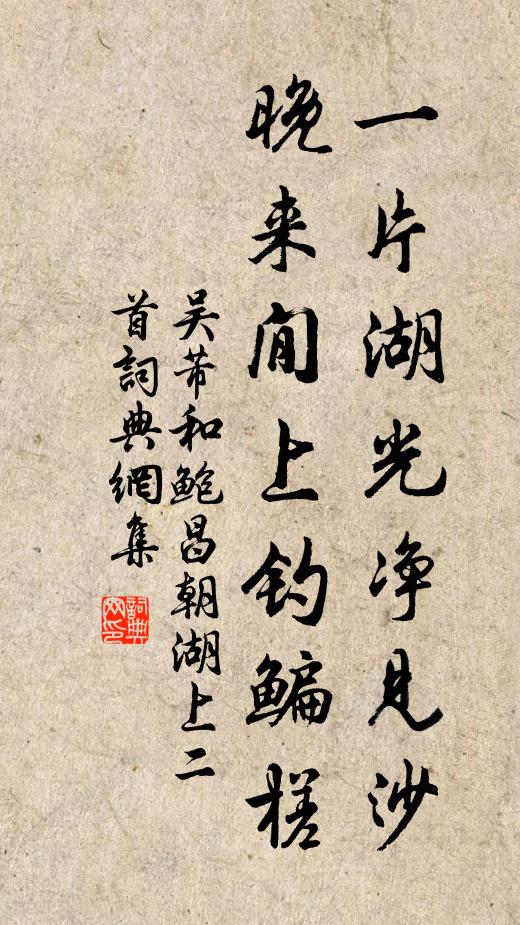 一片湖光净見沙
晚来閒上釣鯿槎
吴芾和鲍昌朝湖上二
首詞典網集
詞典
网印